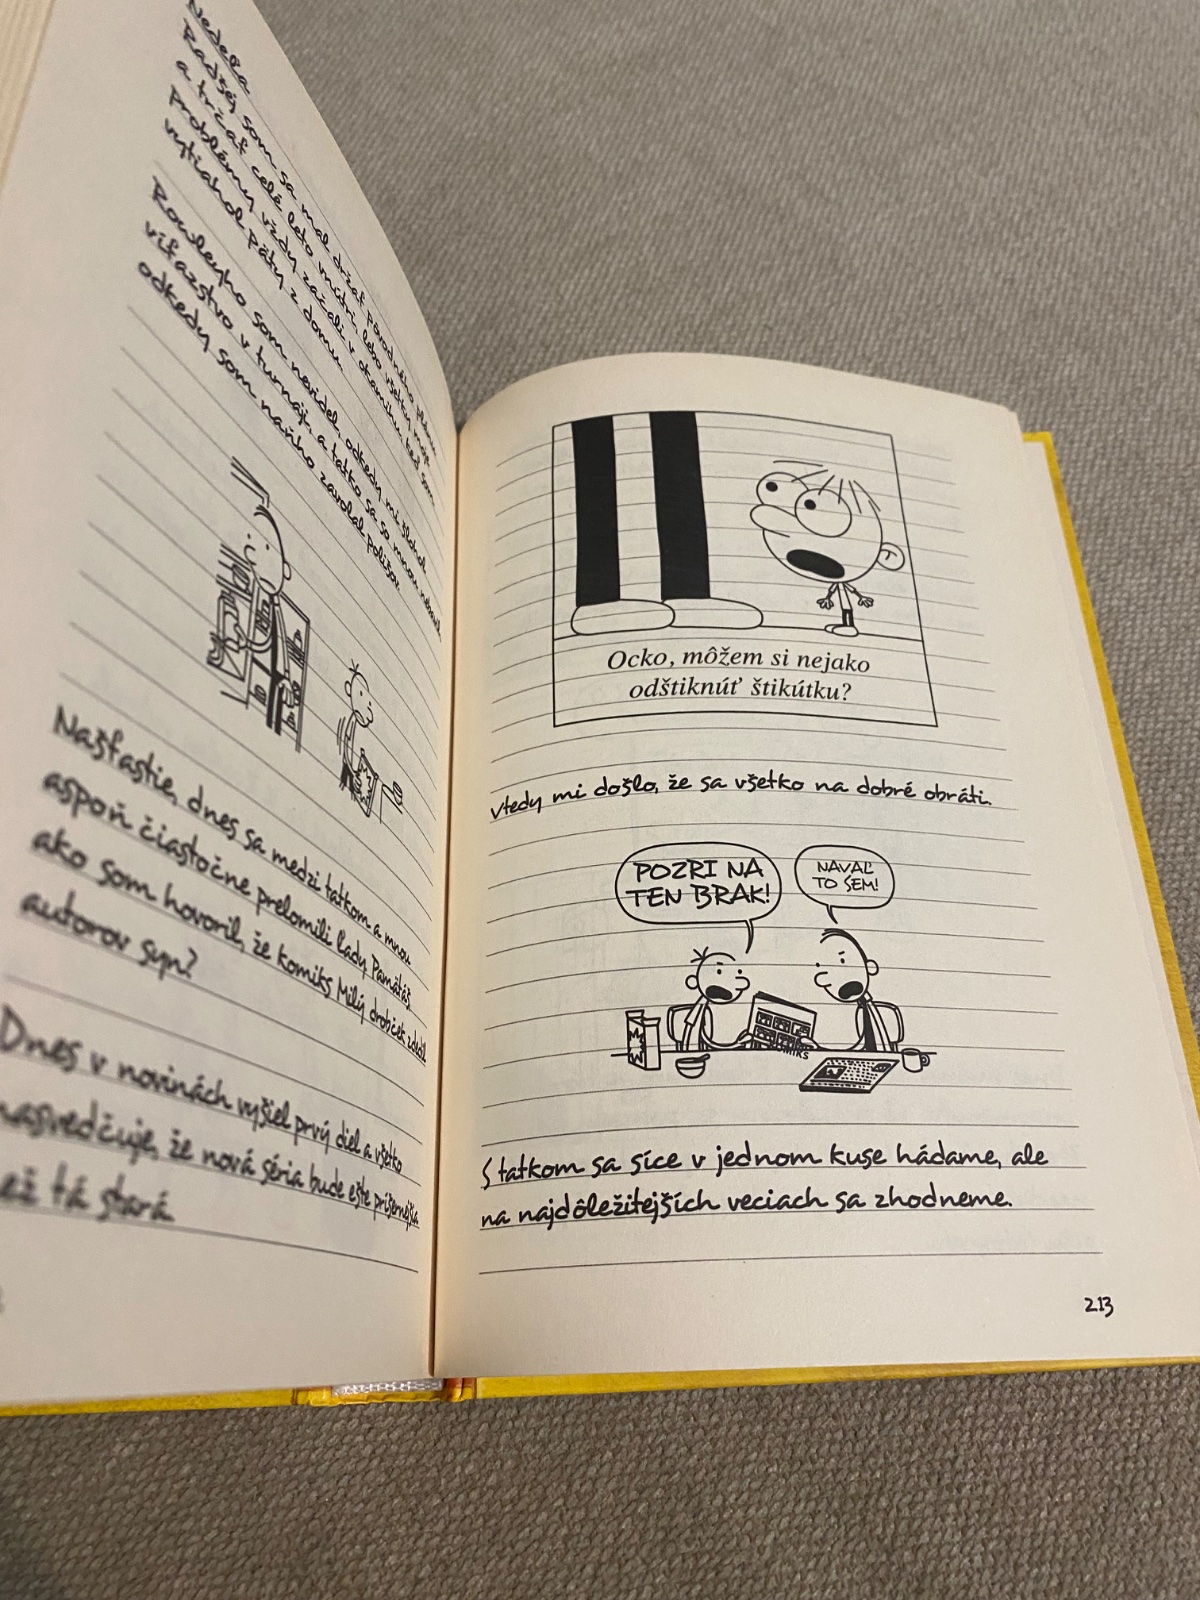 Nedeľa
Radšej som sa mal držať pôvodného plánu
a trčať celé leto vnútri, lebo všetky moje
problémy vždy začali v okamihu, keď som
vytiahol päty z domu.
Rowleyho som nevidel, odkedy mi šlohol
víťazstvo v turnaji, a tatko sa so mnou nebavil
odkedy som naňho zavolal policajtov
Našťastie, dnes sa medzi tatkom a mnou
aspoň čiastočne prelomili ľady. Pamätáš,
ako som hovoril, že komiks Milý drobček zdedil
autorov syn?
Dnes v novinách vyšiel prvý diel a všetko
nasvedčuje, že nová séria bude ešte príšernejšia
než tá stará.
Ocko, môžem si nejako
odštiknúť štikútku?
Vtedy mi došlo, že sa všetko na dobré obráti.
POZRI NA
TEN BRAK!
NAVAĽ
TO SEM!
KOMIKS
S tatkom sa síce v jednom kuse hádame, ale
na najdôležitejších veciach sa zhodneme.
213